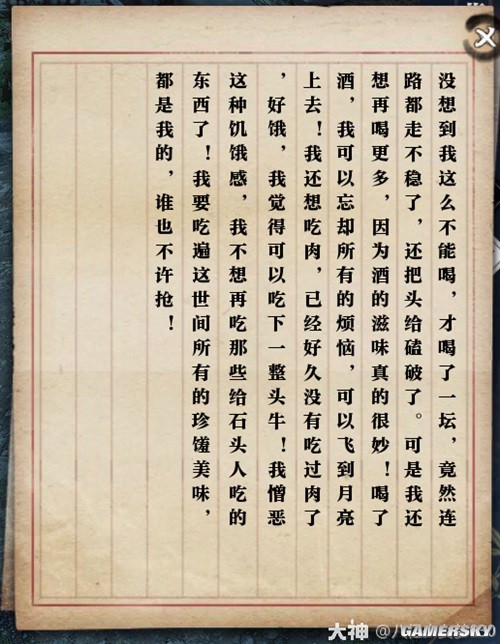 没想到我这么不能喝，才喝了一坛，竟然连
路都走不稳了，还把头给磕破了。可是我还
想再喝更多，因为酒的滋味真的很妙！喝了
酒，我可以忘却所有的烦恼，可以飞到月亮
上去！我还想吃肉，已经好久没有吃过肉了
，好饿，我觉得可以吃下一整头牛！我憎恶
这种饥饿感，我不想再吃那些给石头人吃的
东西了！我要吃遍这世间所有的珍馐美味，
都是我的，谁也不许抢！
大神
GAMERSKY